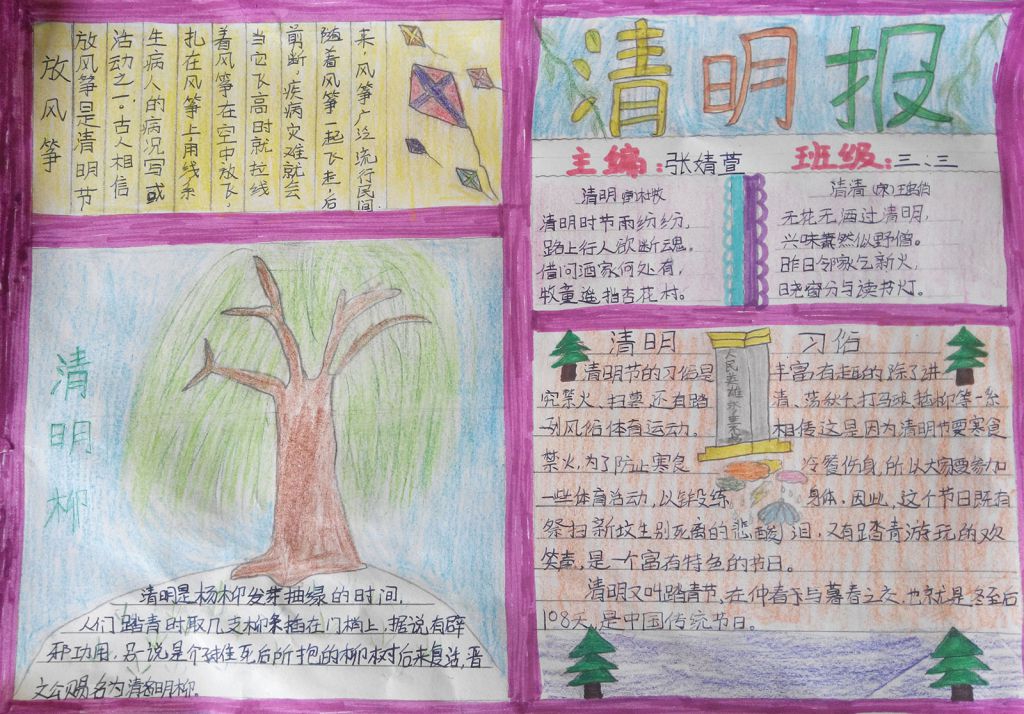 放风筝
放风筝是清明节
活动之一。古人相信
生病人的病况写或
扎在风筝上用线系
着风筝在空中放飞,
当它飞高时就拉线
剪断,疾病灾难就会
随着风筝一起飞走,后
来,风筝广泛流行民间
清明柳
清明是杨柳发芽抽绿的时间,
人们踏青时取几支柳条插在门楣上,据说有辟
邪功用,另一说是介子推死后所抱的柳树后来复活,晋
文公赐名为清明柳。
清明报
主编:张婧萱 班级:三、三
清明
清明时节雨纷纷,
路上行人欲断魂。
借问酒家何处有,
牧童遥指杏花村。
无花无酒过清明,
兴味萧然似野僧。
昨日邻家乞新火,
晓窗分与读书灯。
清明 习俗
清明节的习俗是 丰富有趣的,除了讲
究禁火、扫墓,还有踏 清、荡秋千、打马球、插柳等一系
列风俗体育运动。 相传这是因为清明节要寒食
禁火,为了防止寒食 冷餐伤身,所以大家要参加
一些体育活动,以锻炼 身体。因此,这个节日既有
祭扫新坟生别死离的悲酸 泪,又有踏青游玩的欢
笑声,是一个富有特色的节日。
清明又叫踏青节,在仲春于与暮春之交,也就是冬至后
108天,是中国传统节日。
人民英雄